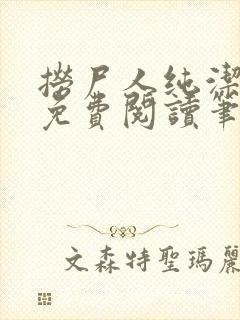 撈尸人純潔
免費閱讀筆
文森特聖瑪麗